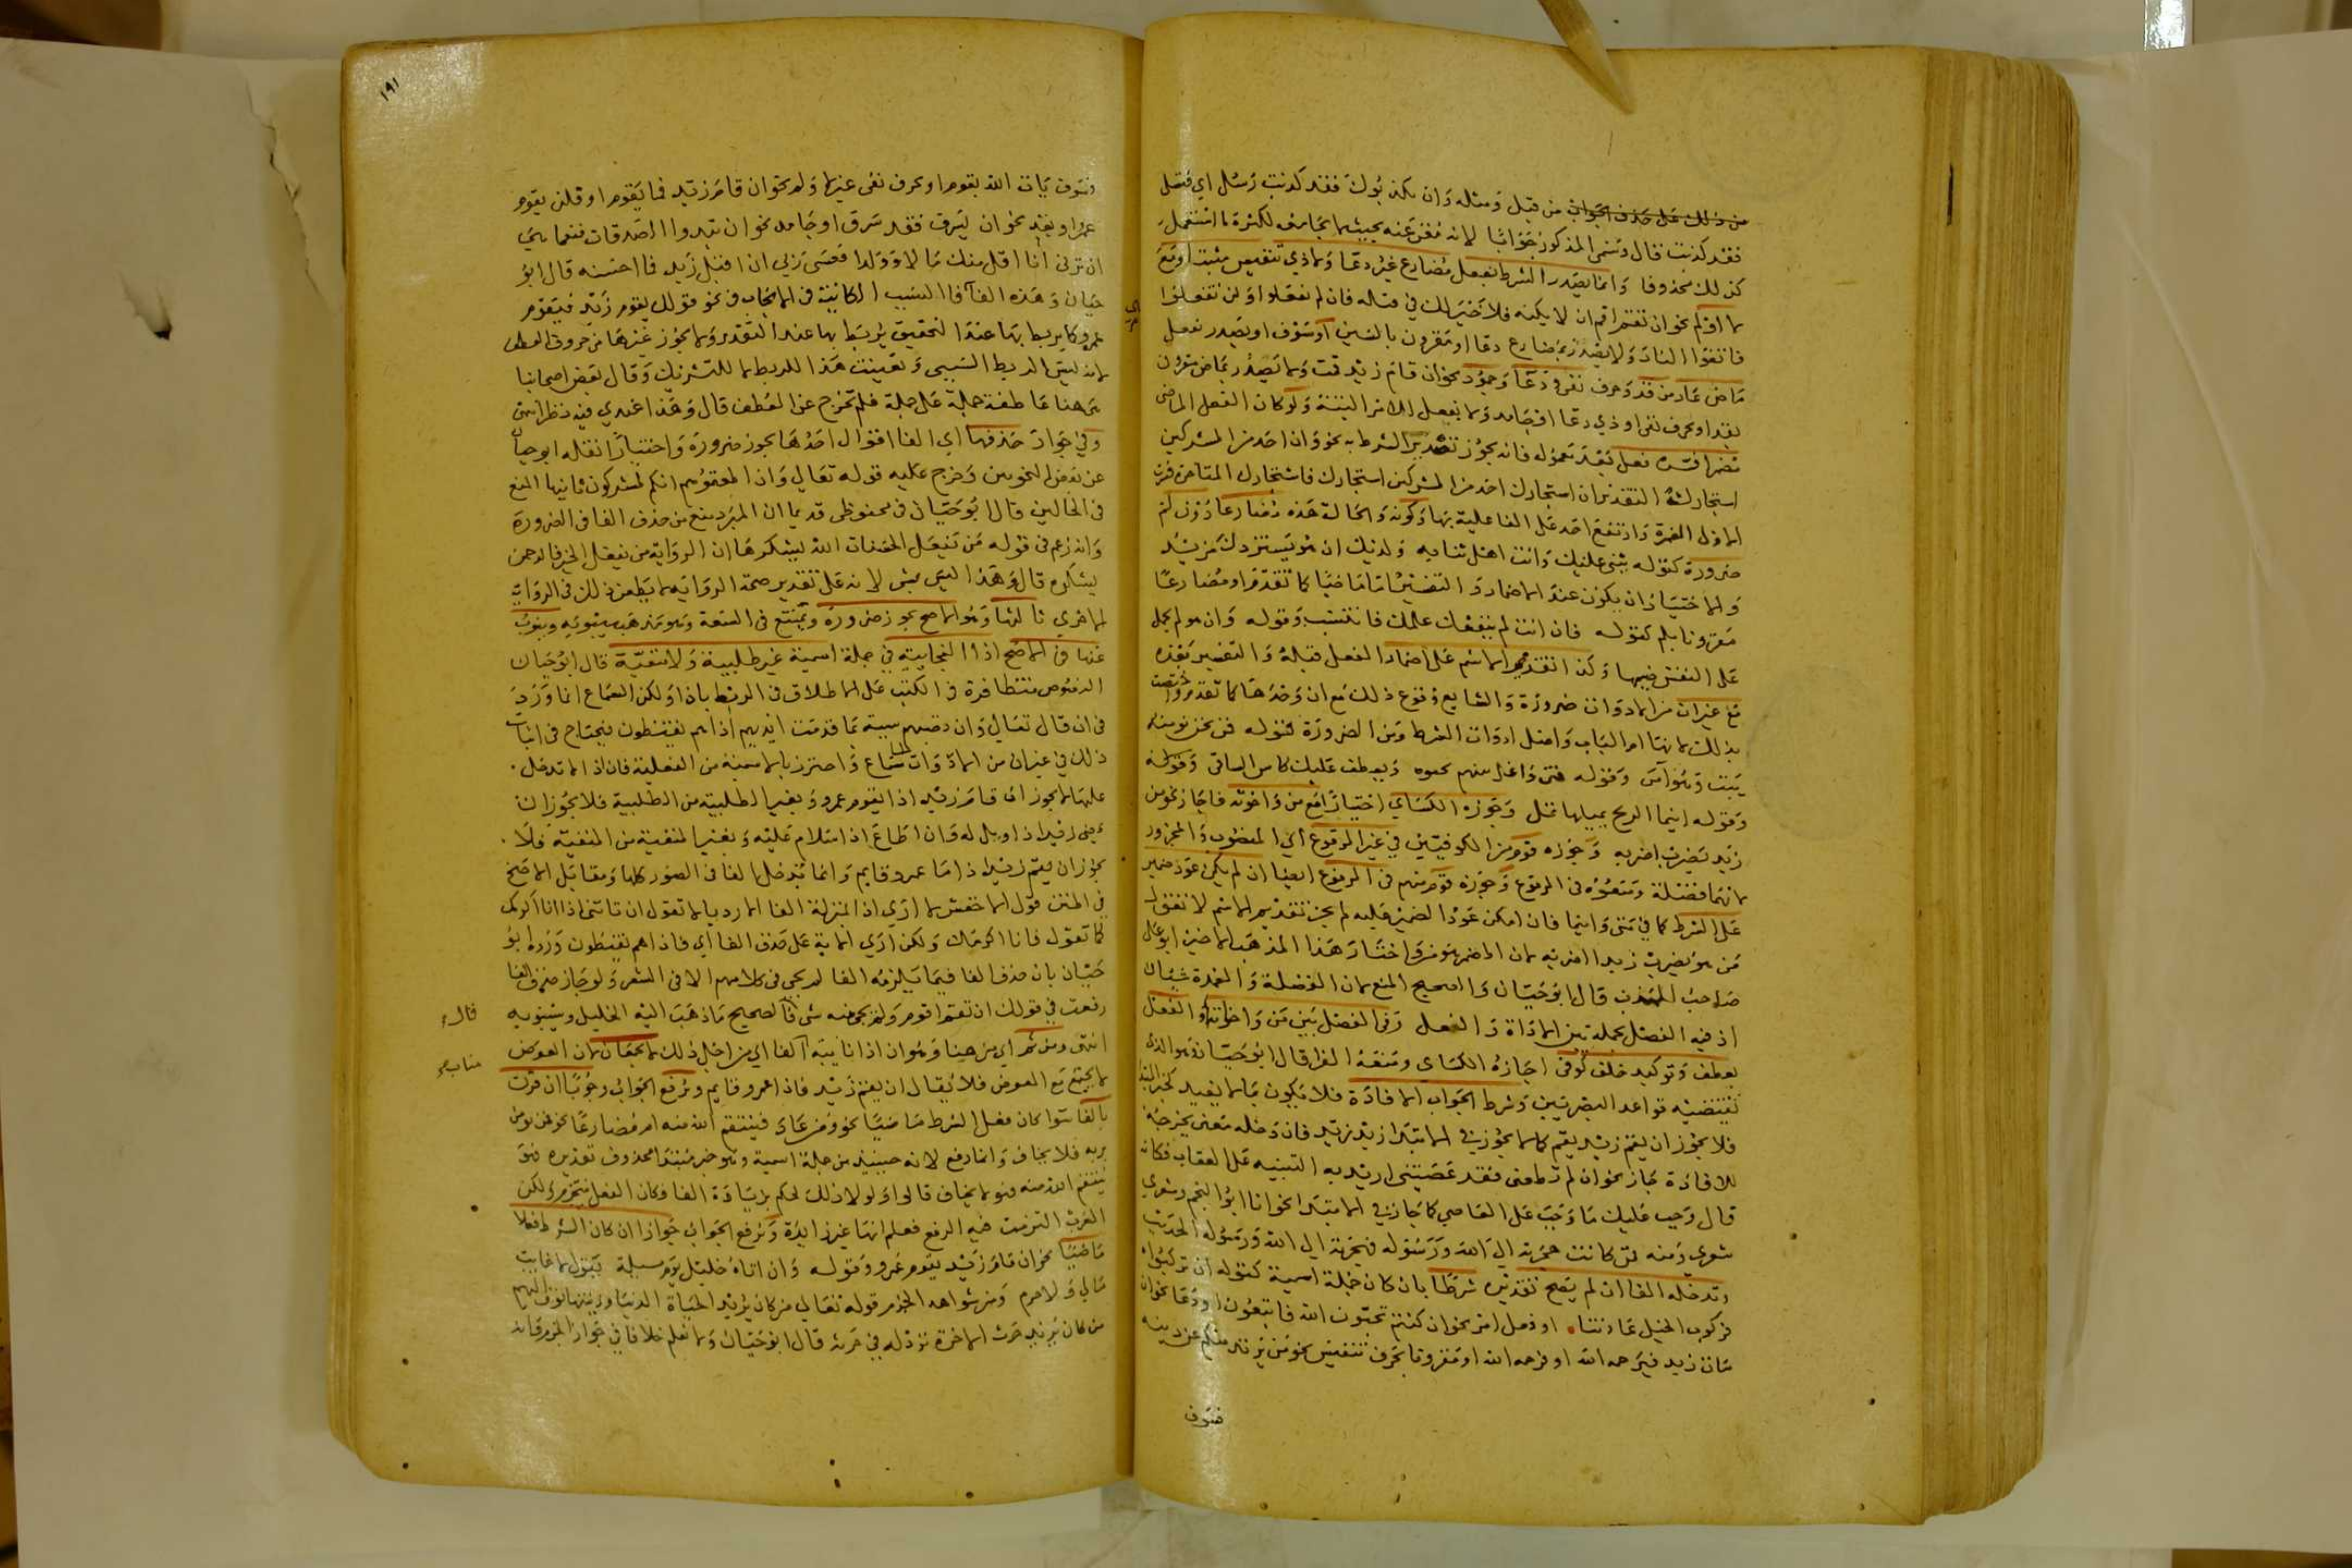 من ذلك على حذف الجواب من قبل ومثله وان يكذبوك فقد كذبت رسل اي فتصل
فقد كذبت فقال وسمى المذكور جوابا لانه مغن عنه بحيث لا يجامعه لكثرة ما استعمل
كذلك محذوفا وانما يصدر الشرط بفعل مضارع غير دعا ولا ذي تنفيس مثبتا او مع
لا او لم نحو ان تقم اقم ان لا يكنه فلا خير لك في قتله فان لم تفعلوا ولن تفعلوا
فاتقوا النار ولا يصدر بمضارع دعا او مقرون بالسين او سوف او يصدر بفعل
ماض عار من قد وحرف نفي ودعا وجمود نحو ان قام زيد قمت ولا يصدر بماض مقرون
بقد او بحرف نفي او ذي دعا او جامد ولا بفعل الامر البتة ولو كان الفعل الماضي
مضمرا فسره فعل بعد معموله فانه يجوز تصدير الشرط به نحو وان احد من المشركين
استجارك التقدير ان استجارك احد من المشركين استجارك فاستجارك المتاخرة فسرت
الاول المضمرة وارتفع احد على الفاعلية بها وكونه والحالة هذه مضارعا دون لم
ضرورة كقوله يثني عليك وانت اهل ثنايه ولديك ان هو يستزدك مزيد
والاختيار ان يكون عند الاضمار والتفسير اما ماضيا كما تقدم او مضارعا
مقرونا بلم كقوله فان انت لم ينفعك علمك فانتسب وقوله وان هو لم يحمل
على النفس ضيمها وكذا تقديم الاسم على اضمار الفعل قبله والتفسير بعده
مع غير ان من الادوات ضرورة والشايع وقوع ذلك مع ان وحدها كما تقدم واختصت
بذلك لانها ام الباب واصل ادوات الشرط ومن الضرورة قوله فمن نحن نومنه
يبت وهو آمن وقوله فمتى واغل ينبهم يحيوه ويعطف عليك كاس الساقي وقوله
وقوله اينما الريح تميلها تمل وجوزه الكساي اختيارا مع من واخوته فاجاز نحو من
زيد يضرب اضربه وجوزه قوم من الكوفيين في غير المرفوع اي المنصوب والمجرور
لانهما فضلة ومنعوه في المرفوع وجوزه قوم منهم في المرفوع ايضا ان لم يكن عود ضمير
على الشرط كما في متى واينما فان امكن عود الضمير عليه لم يجز تقديم الاسم لا تقول
من هو يضرب زيدا اضربه لان المضمر هو من واختار هذا المذهب الماضين ابو علي
صاحب المهذب قال ابو حيان والصحيح المنع لان الفضلة والعمدة شيئان
اذ فيه الفصل بجملة بين الاداة والفعل وفي الفصل بين من واخواته والفعل
بعطف وتوكيد خلف كوفي اجازه الكساي ومنعه الفرا قال ابو حيان وهو الذي
تقتضيه قواعد البصريين وشرط الجواب الافادة فلا يكون بما لا يفيد كخبر المبتدا
فلا يجوز ان يقم زيد يقم كما لا يجوز في الابتدا زيد زيد فان دخله معنى يخرجه
للافادة جاز نحو ان لم تطعني فقد عصيتني اريد به التنبيه على العقاب فكانه
قال وجب عليك ما وجب على العاصي كما جاز في الابتدا نحو انا ابو النجم وشعري
شعري ومنه فمن كانت هجرته الى الله ورسوله فهجرته الى الله ورسوله الحديث
وتدخله الفا ان لم يصح تقديره شرطا بان كان جملة اسمية كقوله ان تركبوا
فركوب الخيل عادتنا او فعل امر نحو ان كنتم تحبون الله فاتبعوني او دعا نحو ان
مات زيد فيرحمه الله او فرحمه الله او مقرونا بحرف تنفيس نحو من يرتد منكم عن دينه
فسوف
١٩١
فسوف يات الله بقوم او بحرف نفي غير لا ولم نحو ان قام زيد فما يقوم او فلن يقوم
عمرو او بقد نحو ان يسرق فقد سرق او جامد نحو ان تبدوا الصدقات فنعما هي
ان ترن انا اقل منك مالا وولدا فعسى ربي ان اقبل زيد فما احسنه قال ابو
حيان وهذه الفا فا السبب الكاينة في الايجاب في نحو قولك يقوم زيد فيقوم
عمرو كما يربط بها عند التحقيق يربط بها عند التقدير ولا يجوز غيرها من حروف العطف
لانه ليس الربط السببي وتعينت هذا للربط لا للتشريك وقال بعض اصحابنا
هي هنا عاطفة جملة على جملة فلم تخرج عن العطف قال وهذا عندي فيه نظر انتهى
وفي جواز حذفها اي الفا اقوال احدها يجوز ضرورة واختيارا نقله ابو حيان
عن بعض النحويين وخرج عليه قوله تعالى وان اطعتموهم انكم لمشركون ثانيها المنع
في الحالين قال ابو حيان في محفوظي قديما ان المبرد منع من حذف الفا في الضرورة
وانه زعم في قوله من يفعل الحسنات الله يشكرها ان الرواية من يفعل الخير فالرحمن
يشكره قال وهذا ليس بشي لانه على تقدير صحة الرواية لا يطعن ذلك في الرواية
الاخرى ثالثها وهو الاصح يجوز ضرورة ويمتنع في السعة وهو مذهب سيبويه وينوب
عنها في الاصح اذا الفجايية في جملة اسمية غير طلبية ولا منفية قال ابو حيان
النصوص متظافرة في الكتب على الاطلاق في الربط باذا ولكن السماع انما ورد
في ان قال تعالى وان تصبهم سيئة بما قدمت ايديهم اذا هم يقنطون فيحتاج في اثبات
ذلك في غير ان من الادوات الى سماع واحترز بالاسمية من الفعلية فان اذا لا تدخل
عليها لا يجوز ان قام زيد اذا يقوم عمرو وبغير الطلبية من الطلبية فلا يجوز ان
عصى زيد اذا ويل له وان اطاع اذا سلام عليه وبغير المنفية من المنفية فلا
يجوز ان يقم زيد اذا ما عمرو قايم وانما تدخل الفا في الصور كلها ومقابل الاصح
في المتن قول الاخفش لا ارى اذا بمنزلة الفا الا رديا لا تقول ان تاتني اذا انا اكرمك
كما تقول فانا اكرمك ولكن ارى الاية على حذف الفا اي فاذا هم يقنطون ورده ابو
حيان بان حذف الفا فيما يلزمه الفا لم يجي في كلامهم الا في الشعر ولو جاز حذف الفا
رفعت في قولك ان تقم اقوم ولم يجي منه شي فالصحيح ما ذهب اليه الخليل وسيبويه
انتهى ومن ثم اي من هنا وهو ان اذا نايبة الفا اي من اجل ذلك لا يجتمعان لان العوض
لا يجتمع مع المعوض فلا يقال ان يقم زيد فاذا عمرو قايم ويرفع الجواب وجوبا ان قرن
بالفا سوا كان فعل الشرط ماضيا نحو ومن عاد فينتقم الله منه ام مضارعا نحو فمن يومن
بربه فلا يخاف وانما رفع لانه حينيذ من جملة اسمية وهو خبر مبتدا محذوف تقديره فهو
ينتقم الله منه فهو لا يخاف قالوا ولولا ذلك لحكم بزيادة الفا وكان الفعل ينجزم ولكن
العرب التزمت فيه الرفع فعلم انها غير زايدة ويرفع الجواب جوازا ان كان الشرط فعلا
ماضيا نحو ان قام زيد يقوم عمرو وقوله وان اتاه خليل يوم مسئلة يقول لا غايب
مالي ولا حرم ومن شواهد الجزم قوله تعالى من كان يريد الحياة الدنيا وزينتها نوف اليهم
من كان يريد حرث الاخرة نزد له في حرثه قال ابو حيان ولا نعلم خلافا في جواز الجزم فانه
قال